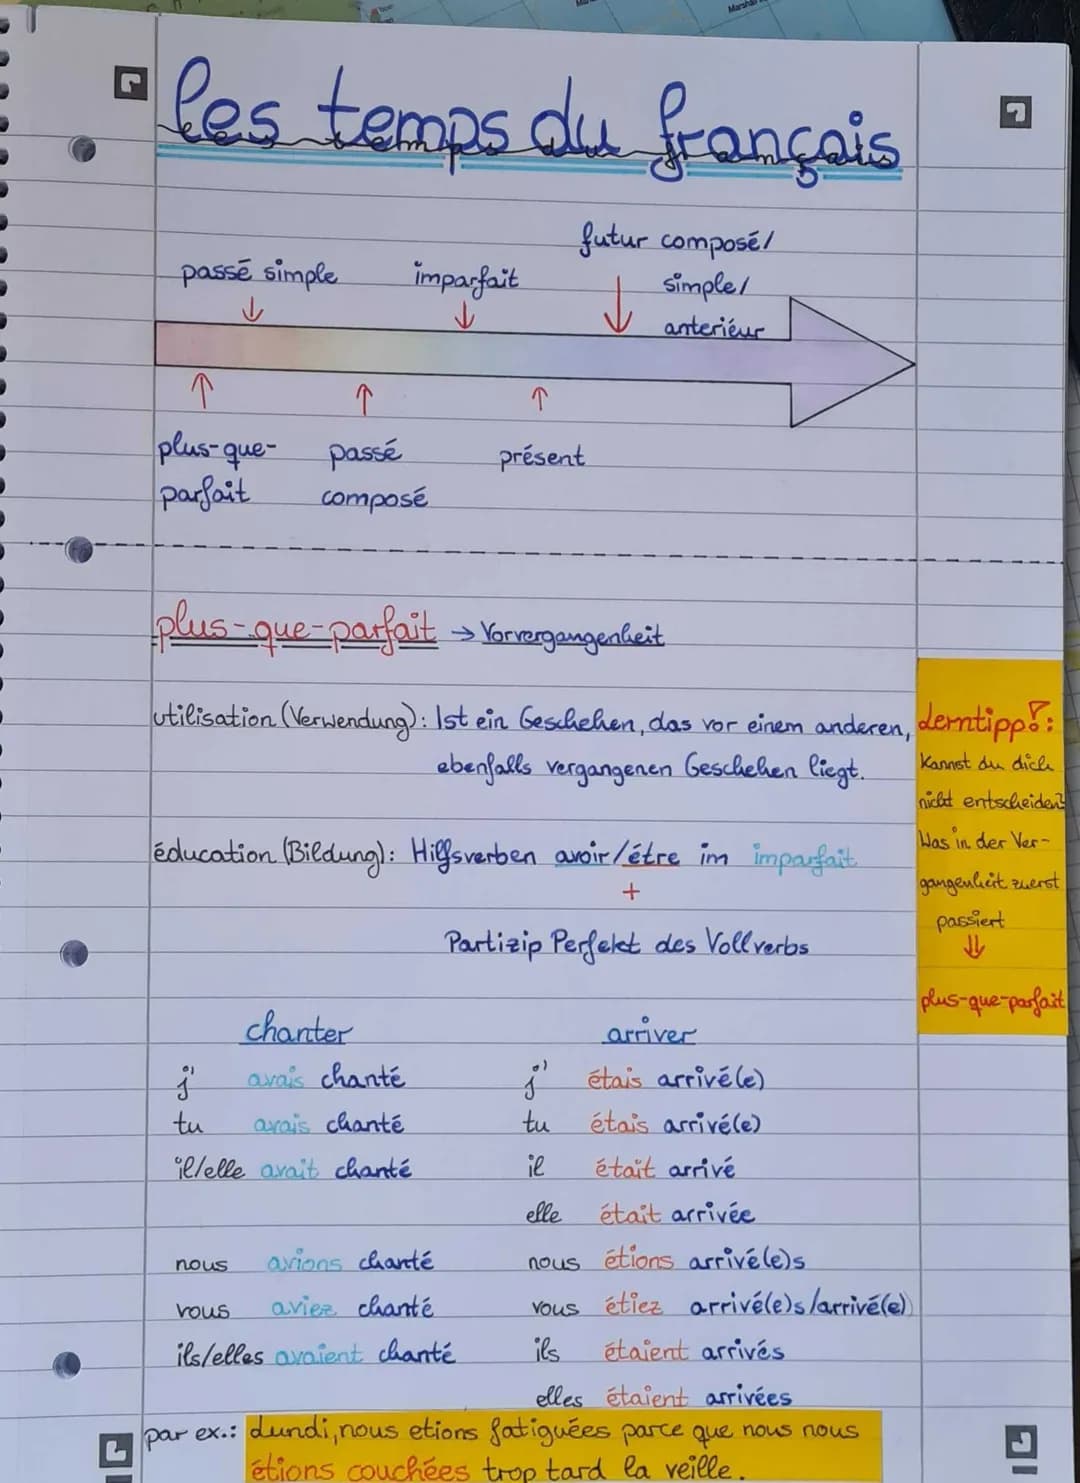 les temps du français
futur composé/
passé simple imparfait simple/
anteriéur
plus-que- passé présent
parfait composé
plus-que-parfait → Vorvergangenheit
utilisation (Verwendung): Ist ein Geschehen, das vor einem anderen,
ebenfalls vergangenen Geschehen liegt.
Lerntipp!:
Kannst du dich
nicht entscheiden?
Was in der Ver-
gangenheit zuerst
passiert
⇓
plus-que-parfait
éducation (Bildung): Hilfsverben avoir/étre im imparfait
+
Partizip Perfekt des Vollverbs
chanter
j' avais chanté
tu avais chanté
il/elle avait chanté
nous avions chanté
vous aviez chanté
ils/elles avaient chanté
arriver
j' étais arrivé(e)
tu étais arrivé(e)
il était arrivé
elle était arrivée
nous étions arrivé(e)s
vous étiez arrivé(e)s/arrivé(e)
ils étaient arrivés
elles étaient arrivées
par ex.: Lundi, nous etions fatiguées parce que nous nous
étions couchées trop tard la veille.